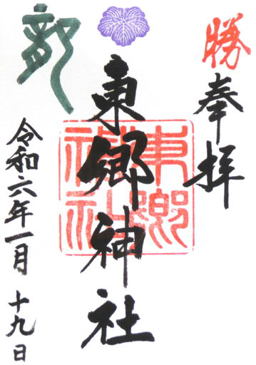 勝
奉拝
東郷神社
東郷
神社
龍
令和六年一月
十九日